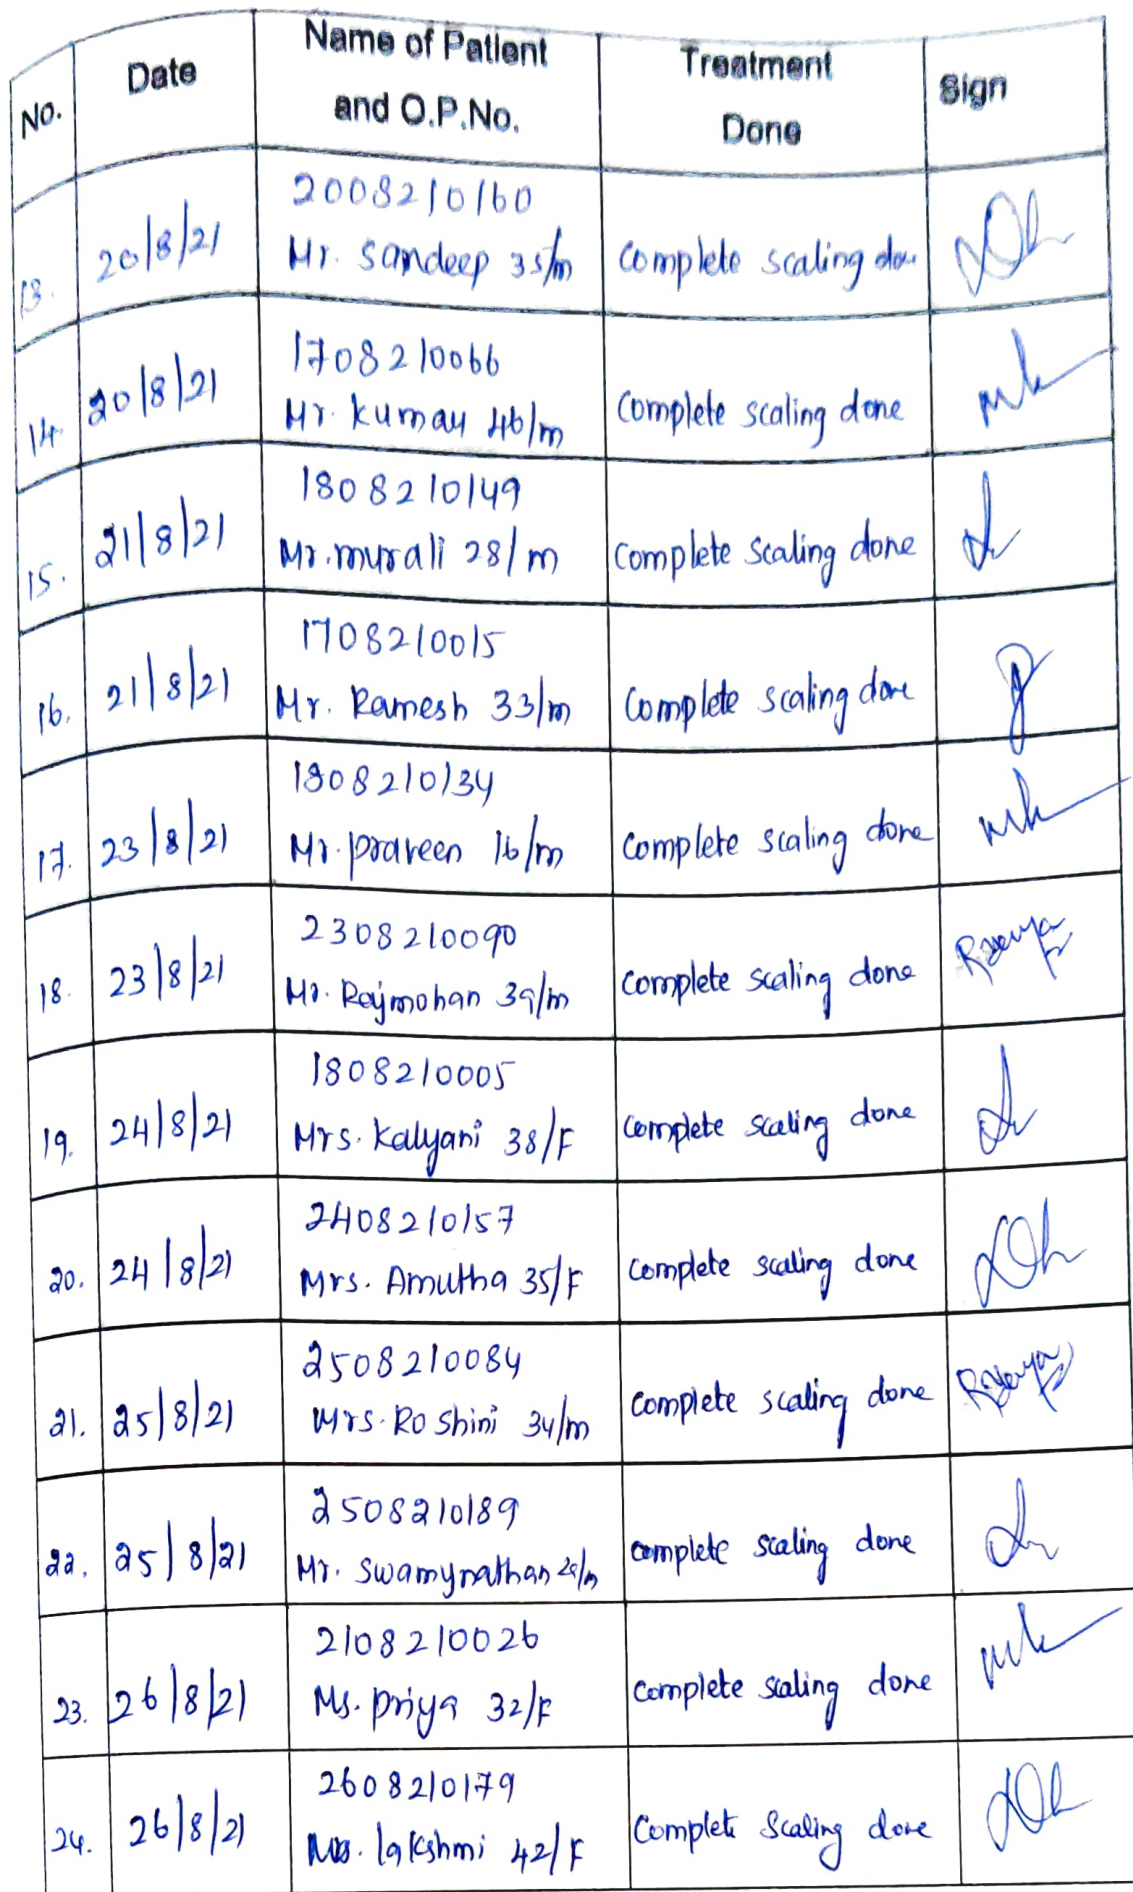 No. Date Name of Patient and O.P.No. Treatment Done Sign
13. 20/8/21 2008210160
Mr. Sandeep 35/m complete scaling
14. 20/8/21 1708210066
Mr. Kumar 46/m complete scaling done
15. 21/8/21 1808210149
Mr. murali 28/m complete scaling done
16. 21/8/21 1708210015
Mr. Ramesh 33/m complete scaling done
17. 23/8/21 1808210134
Mr. praveen 16/m complete scaling done
18. 23/8/21 2308210090
Mr. Rajmohan 39/m complete scaling done
19. 24/8/21 1808210005
Mrs. Kalyani 38/F complete scaling done
20. 24/8/21 2408210157
Mrs. Amutha 35/F complete scaling done
21. 25/8/21 2508210084
Mrs. Roshini 34/m complete scaling done
22. 25/8/21 2508210189
Mr. Swamynathan complete scaling done
23. 26/8/21 2108210026
Ms. priya 32/F complete scaling done
24. 26/8/21 2608210179
lakshmi 42/F Complete Scaling done